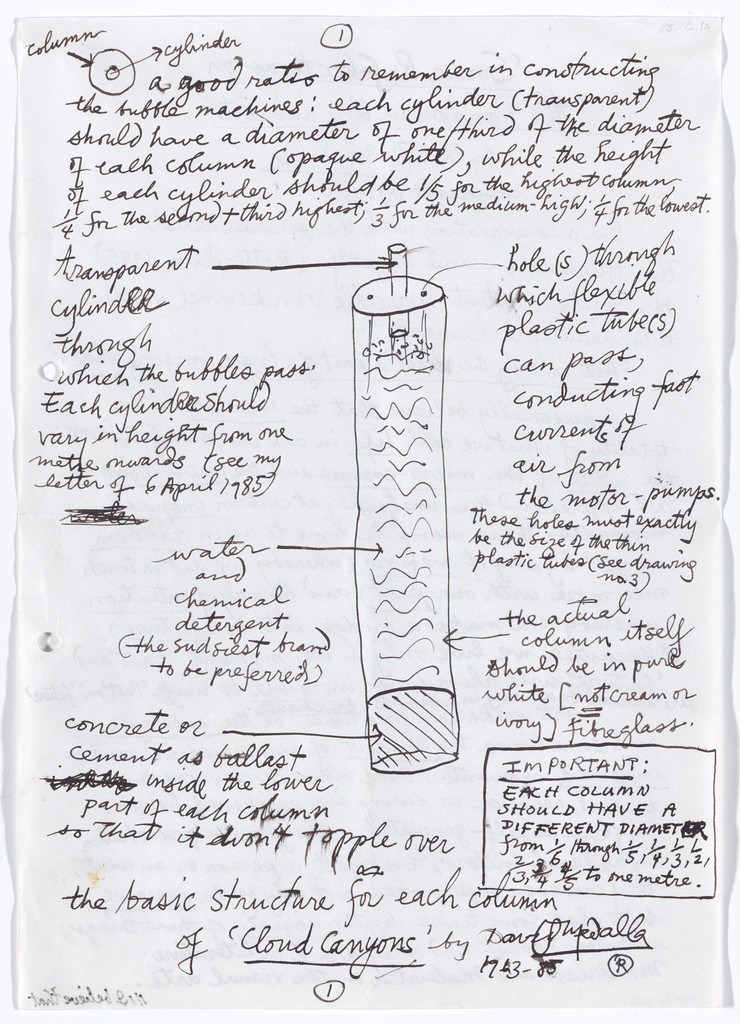 ①
column
cylinder
a good ratio to remember in constructing
the bubble machines: each cylinder (transparent)
should have a diameter of one/third of the diameter
of each column (opaque white), while the height
of each cylinder should be 1/5 for the highest column,
1/4 for the second + third highest; 1/3 for the medium-high; 1/4 for the lowest.
transparent
cylinder
through
which the bubbles pass.
Each cylinder should
vary in height from one
metre onwards (see my
letter of 6 April, 1985)
hole(s) through
which flexible
plastic tube(s)
can pass,
conducting fast
currents of
air from
the motor-pumps.
These holes must exactly
be the size of the thin
plastic tubes (see drawing
no. 3)
water
and
chemical
detergent
(the sudsiest brand
to be preferred)
the actual
column itself
should be in pure
white [not cream or
ivory] fibreglass.
concrete or
cement as ballast
inside the lower
part of each column
so that it don't topple over
IMPORTANT:
EACH COLUMN
SHOULD HAVE A
DIFFERENT DIAMETER
from 1/6 through 1/5, 1/4, 1/3, 1/2,
2/3, 3/4, 4/5 to one metre.
the basic structure for each column
of 'Cloud Canyons' by David Medalla
®
①